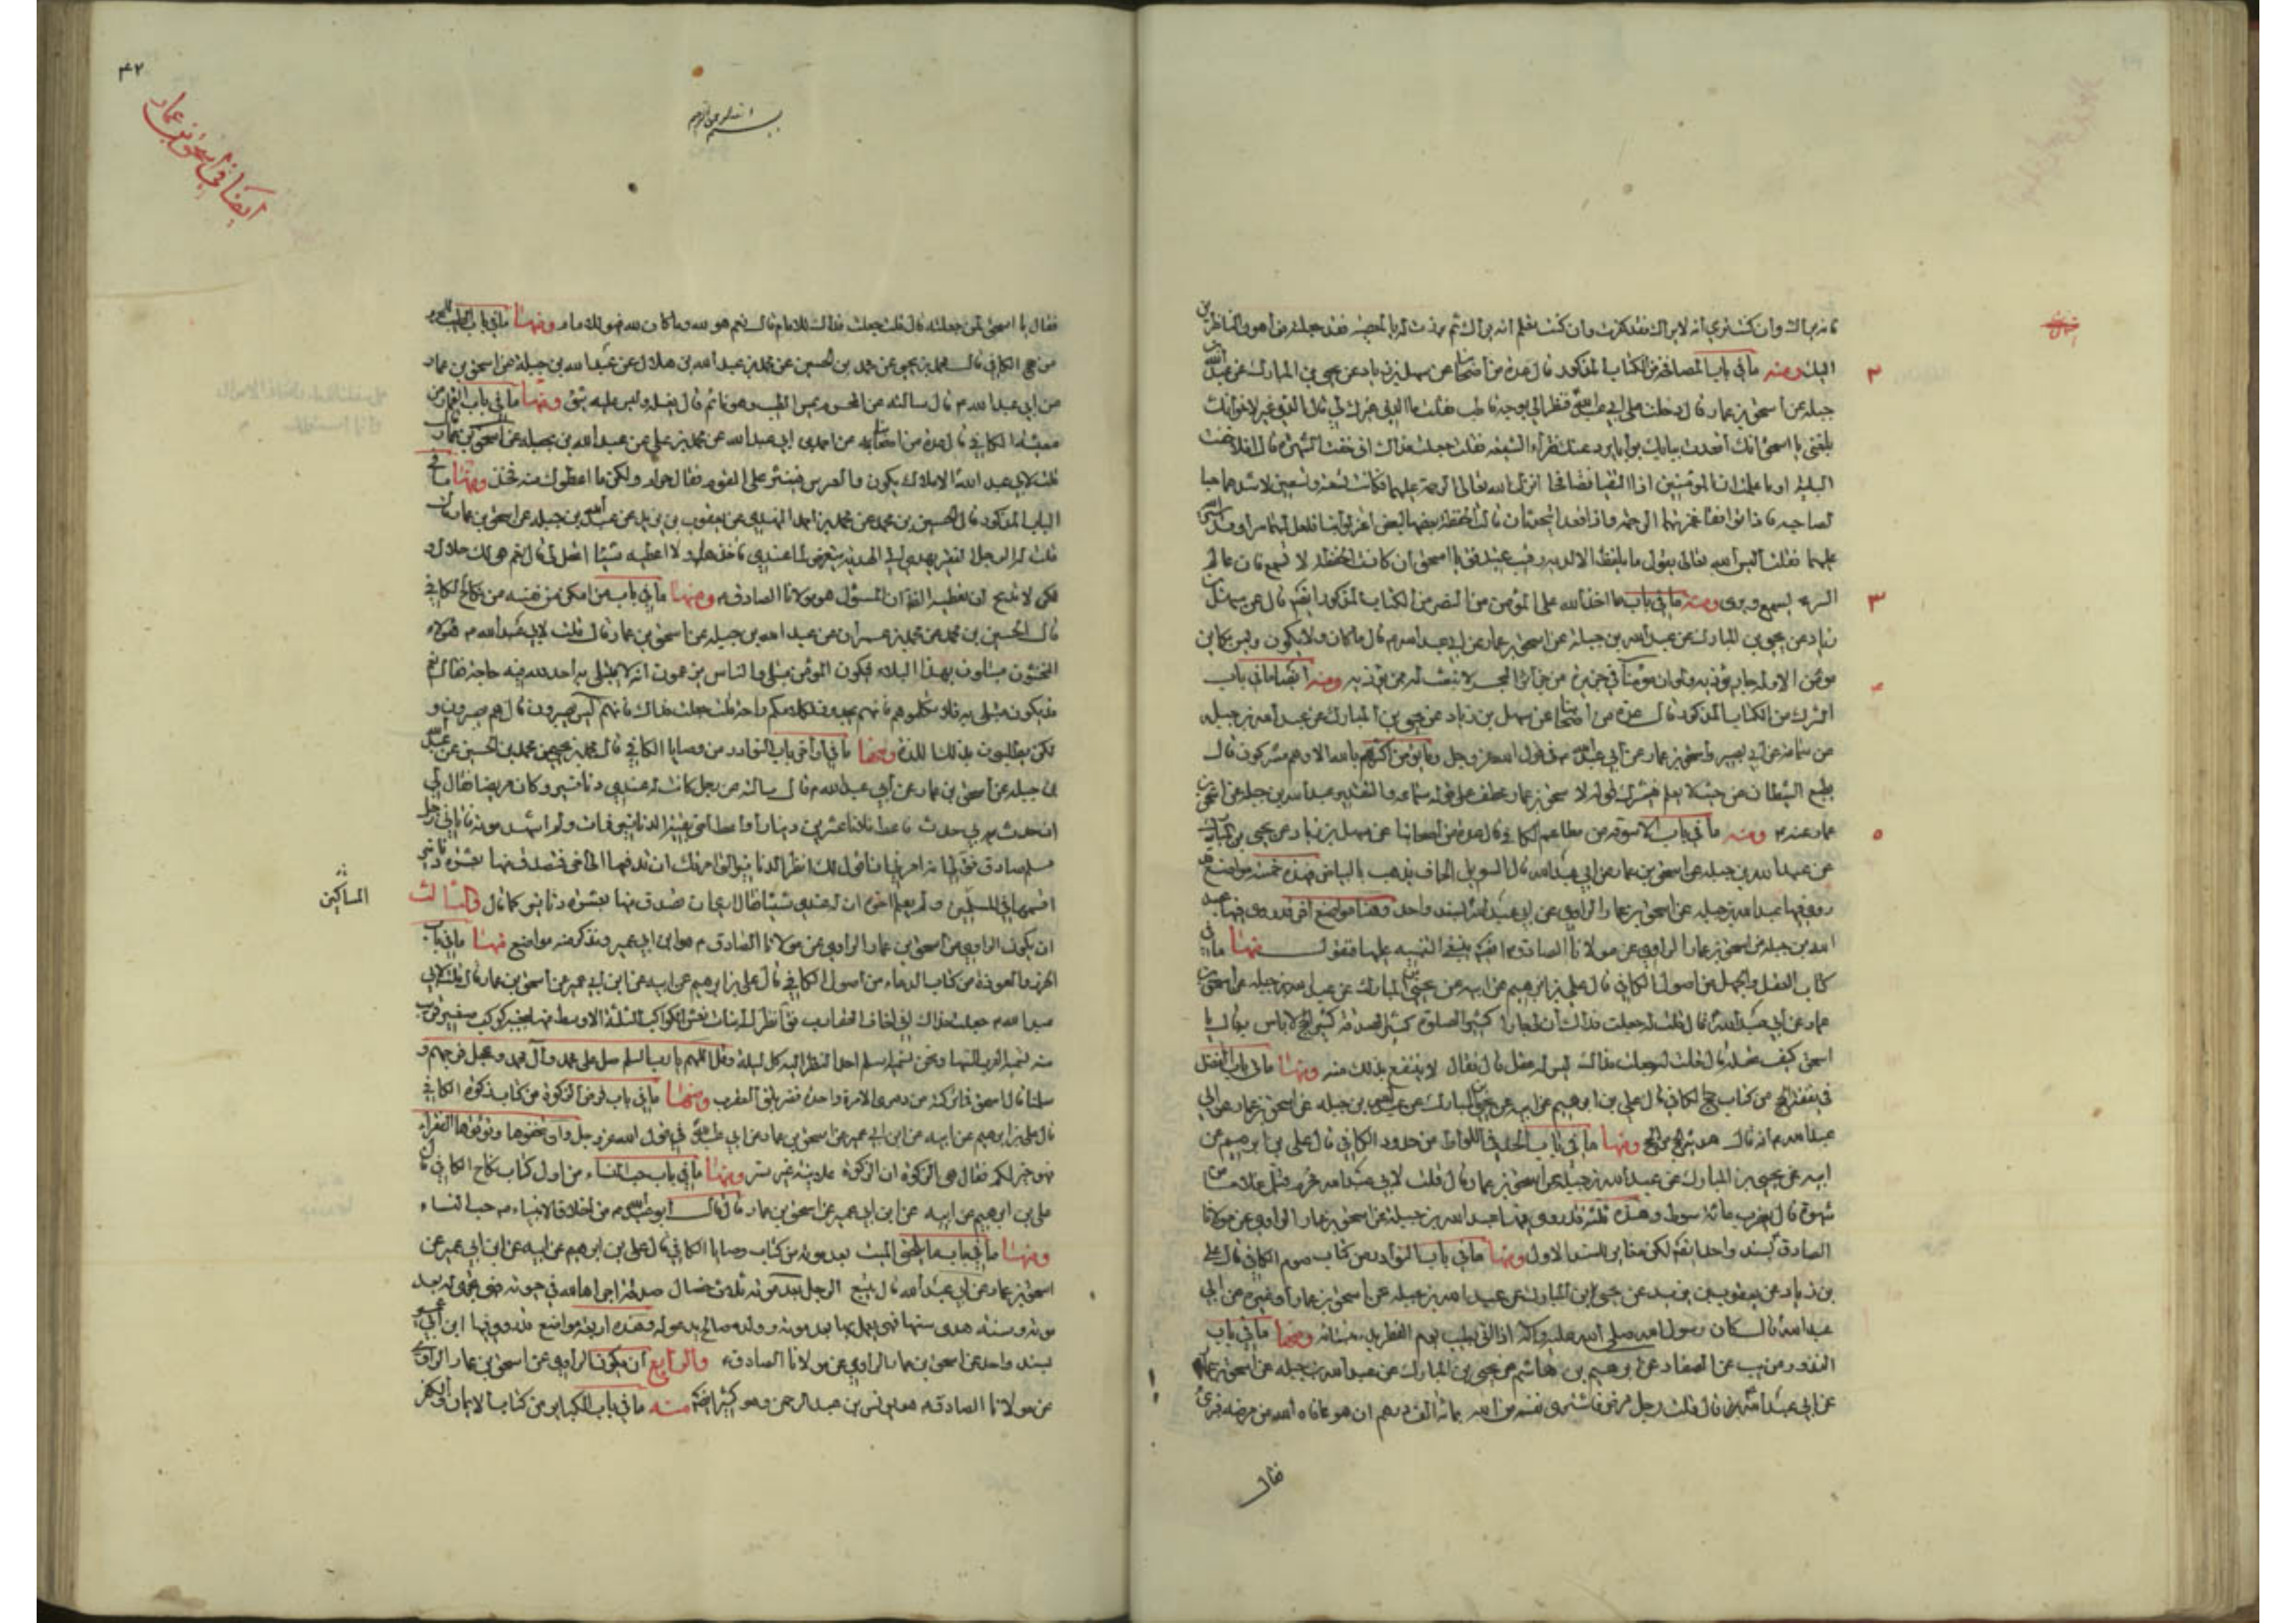 فانه يراك وان كنت ترى انه لا يراك فقد كفرت وان كنت تعلم انه يراك ثم برزت له بالمعصية فقد جعلته من اهون الناظرين
اليك ومنه ما في باب المصافحة من الكتاب المذكور قال عدة من اصحابنا عن سهل بن زياد عن يحيى بن المبارك عن عبد الله بن
جبلة عن اسحق بن عمار قال دخلت على ابي عبد الله فنظر الي بوجه قاطب فقلت ما الذي غيرك لي قال الذي غيرك لاخوانك
بلغني يا اسحق انك اقعدت ببابك بوابا يرد عنك فقراء الشيعة فقلت جعلت فداك اني خفت الشهرة قال افلا خفت
البلية او ما علمت ان المؤمنين اذا التقيا فتصافحا انزل الله تعالى الرحمة عليهما فكانت تسعة وتسعين لاشدهما حبا
لصاحبه فاذا توافقا غمرتهما الرحمة واذا قعدا يتحدثان قالت الحفظة بعضها لبعض اعتزلوا بنا فلعل لهما سرا وقد ستر الله
عليهما فقلت اليس الله تعالى يقول ما يلفظ من قول الا لديه رقيب عتيد فقال يا اسحق ان كانت الحفظة لا تسمع فان عالم
السر يسمع ويرى ومنه ما في باب ما اخذ الله على المؤمن من الصبر من الكتاب المذكور ايضا قال عن سهل بن
زياد عن يحيى بن المبارك عن عبد الله بن جبلة عن اسحق بن عمار عن ابي عبد الله قال ما كان ولا يكون وليس بكاين
مؤمن الا وله جار يؤذيه ولو ان مؤمنا في جزيرة من جزائر البحر لانبعث له من يؤذيه ومنه ايضا ما في باب
الشرك من الكتاب المذكور قال عدة من اصحابنا عن سهل بن زياد عن يحيى بن المبارك عن عبد الله بن جبلة
عن سماعة عن ابي بصير واسحق بن عمار عن ابي عبد الله في قول الله عز وجل وما يؤمن اكثرهم بالله الا وهم مشركون قال
يطيع الشيطان من حيث لا يعلم فيشرك قوله لاسحق بن عمار عطف على قوله سماعة والتقدير عبد الله بن جبلة عن اسحق بن
عمار عنه ومنه ما في باب الاسوقة من مطاعم الكافي قال عدة من اصحابنا عن سهل بن زياد عن يحيى بن المبارك
عن عبد الله بن جبلة عن اسحق بن عمار عن ابي عبد الله قال السويق الجاف يذهب بالبياض فهذه خمسة مواضع قد
روى فيها عبد الله بن جبلة عن اسحق بن عمار الراوي عن ابي عبد الله بسند واحد وههنا مواضع اخر قد روى فيها عبد
الله بن جبلة عن اسحق بن عمار الراوي عن مولانا الصادق ايضا ينبغي التنبيه عليها فنقول منها ما في
كتاب العقل والجهل من اصول الكافي قال علي بن ابراهيم عن ابيه عن يحيى بن المبارك عن عبد الله بن جبلة عن اسحق بن
عمار عن ابي عبد الله قال قلت له جعلت فداك ان لي جارا كثير الصلوة كثير الصدقة كثير الحج لا باس به قال يا
اسحق كيف عقله قال قلت له جعلت فداك ليس له عقل قال فقال لا ينتفع بذلك منه ومنها ما في باب الفضل
في نفقة الحج من كتاب حج الكافي قال علي بن ابراهيم عن ابيه عن يحيى بن المبارك عن عبد الله بن جبلة عن اسحق بن عمار عن ابي
عبد الله انه قال هدية الحج من الحج ومنها ما في باب الحد في اللواط من حدود الكافي قال علي بن ابراهيم عن
ابيه عن يحيى بن المبارك عن عبد الله بن جبلة عن اسحق بن عمار قال قلت لابي عبد الله محرم قبل غلاما من
شهوة قال يضرب مائة سوط وهذه ثلثة قد روى فيها عبد الله بن جبلة عن اسحق بن عمار الراوي عن مولانا
الصادق بسند واحد ايضا لكن مغاير للسند الاول ومنها ما في باب النوادر من كتاب صوم الكافي قال علي
بن زياد عن يعقوب بن يزيد عن يحيى بن المبارك عن عبد الله بن جبلة عن اسحق بن عمار او غيره عن ابي
عبد الله قال كان رسول الله صلى الله عليه وآله اذا اتى بطيب يوم الفطر بدء بنسائه ومنها ما في باب
النذور من يب عن الصفار عن ابراهيم بن هاشم عن يحيى بن المبارك عن عبد الله بن جبلة عن اسحق بن عمار
عن ابي عبد الله قال قلت رجل مرض فاشترى نفسه من الله بمائة الف درهم ان هو عافاه الله من مرضه فبرئ
فقال
٢
٣
٤
٥
٤٢
ايضا في اسحق بن عمار
بسم الله الرحمن الرحيم
فقال يا اسحق لمن جعلته قال قلت جعلت فداك للامام قال نعم هو لله وما كان لله فهو للامام ومنها ما في باب الطيب للمحرم
من حج الكافي قال محمد بن يحيى عن محمد بن الحسين عن محمد بن عبد الله بن هلال عن عبد الله بن جبلة عن اسحق بن عمار
عن ابي عبد الله قال سالته عن المحرم يمس الطيب وهو نائم قال يغسله وليس عليه شئ ومنها ما في باب النثار من
معيشة الكافي قال عدة من اصحابنا عن احمد بن ابي عبد الله عن محمد بن علي عن عبد الله بن جبلة عن اسحق بن عمار
قلت لابي عبد الله الاملاك يكون والعرس فينثر على القوم فقال حرام ولكن ما اعطوك منه فخذ ومنها ما في
الباب المذكور قال الحسين بن محمد عن محمد بن احمد النهدي عن يعقوب بن يزيد عن عبد الله بن جبلة عن اسحق بن عمار قال
قلت له الرجل الفقير يهدي الي الهدية يتعرض لما عندي فآخذها ولا اعطيه شيئا ايحل لي قال نعم هي لك حلال و
لكن لا تدع ان تعطيه الظ ان المسؤل هو مولانا الصادق ومنها ما في باب من امكن من نفسه من نكاح الكافي
قال الحسين بن محمد عن محمد بن عمران عن عبد الله بن جبلة عن اسحق بن عمار قال قلت لابي عبد الله هؤلاء
المخنثون مبتلون بهذا البلاء فيكون المؤمن مبتلى والناس يزعمون انه لا يبتلى به احد لله فيه حاجة فقال نعم
قد يكون مبتلى به فلا تكلموهم فانهم يجدون لكلامكم راحة قلت جعلت فداك فانهم ليس يصبرون قال هم يصبرون و
لكن يطلبون بذلك اللذة ومنها ما في اواخر باب النوادر من وصايا الكافي قال محمد بن يحيى عن محمد بن الحسين عن عبد الله
بن جبلة عن اسحق بن عمار عن ابي عبد الله قال سالته عن رجل كانت له عندي دنانير وكان مريضا فقال لي
ان حدث بي حدث فاعط فلانا عشرين دينارا واعط اخي بقية الدنانير فمات ولم اشهد موته فاتاني رجل
مسلم صادق فقال لي انه امرني ان اقول لك انظر الدنانير التي امرتك ان تدفعها الى اخي فتصدق منها بعشرة دنانير
اقسمها في المسلمين ولم يعلم اخوه ان له عندي شيئا فقال ارى ان تصدق منها بعشرة دنانير كما قال والثالث
ان يكون الراوي عن اسحق بن عمار الراوي عن مولانا الصادق هو ابن ابي عمير ونذكر منه مواضع منها ما في باب
الحرز والعوذة من كتاب الدعاء من اصول الكافي قال علي بن ابراهيم عن ابيه عن ابن ابي عمير عن اسحق بن عمار قال قلت لابي
عبد الله جعلت فداك اني اخاف العقارب فقال انظر الى بنات نعش الكواكب الثلثة الاوسط منها بجنبه كوكب صغير قريب
منه تسميه العرب السها ونحن نسميه اسلم احد النظر اليه كل ليلة وقل اللهم يا رب اسلم صل على محمد وآل محمد وعجل فرجهم و
سلمنا قال اسحق فما تركته من دهري الا مرة واحدة فضربتني العقرب ومنها ما في باب فرض الزكوة من كتاب زكوة الكافي
قال علي بن ابراهيم عن ابيه عن ابن ابي عمير عن اسحق بن عمار عن ابي عبد الله في قول الله عز وجل وان تخفوها وتؤتوها الفقراء
فهو خير لكم فقال هي سوى الزكوة ان الزكوة علانية غير سر ومنها ما في باب حب النساء من اول كتاب نكاح الكافي قال
علي بن ابراهيم عن ابيه عن ابن ابي عمير عن اسحق بن عمار قال قال ابو عبد الله من اخلاق الانبياء حب النساء
ومنها ما في باب ما يلحق الميت بعد موته من كتاب وصايا الكافي قال علي بن ابراهيم عن ابيه عن ابن ابي عمير عن
اسحق بن عمار عن ابي عبد الله قال يتبع الرجل بعد موته ثلاث خصال صدقة اجراها لله في حيوته فهي تجري له بعد
موته وسنة هدى سنها فهي يعمل بها بعد موته وولد صالح يدعو له وهذه اربعة مواضع قد روى فيها ابن ابي عمير
بسند واحد عن اسحق بن عمار الراوي عن مولانا الصادق والرابع ان يكون الراوي عن اسحق بن عمار الراوي
عن مولانا الصادق هو يونس بن عبد الرحمن وهو كثير ايضا منه ما في باب الكبائر من كتاب الايمان والكفر
المساكين